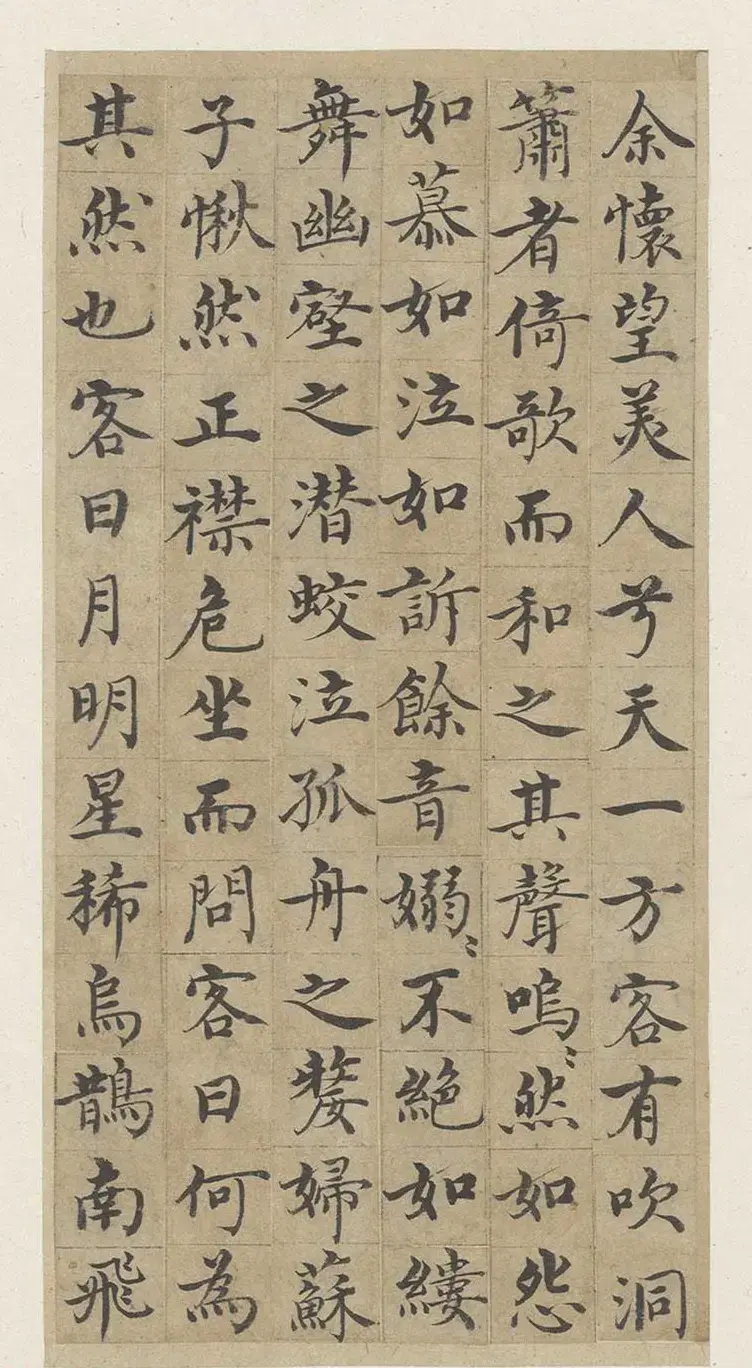 余懷望美人兮天一方客有吹洞
簫者倚歌而和之其聲嗚〻然如怨
如慕如泣如訴餘音嫋〻不絶如縷
舞幽壑之潜蛟泣孤舟之嫠婦蘇
子愀然正襟危坐而問客曰何為
其然也客曰月明星稀烏鵲南飛